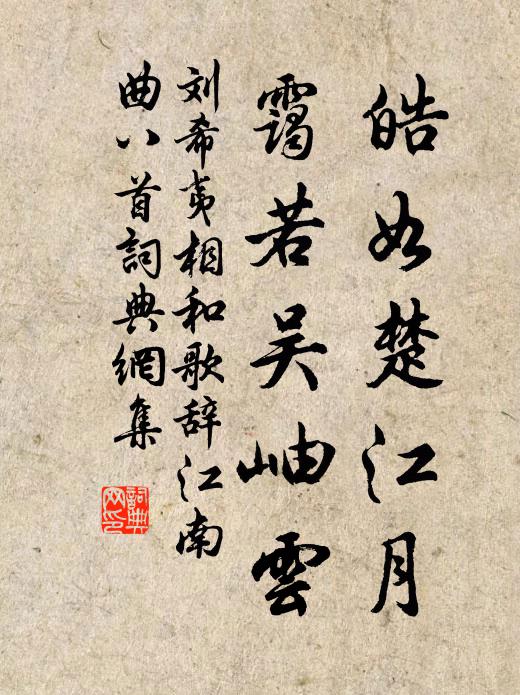 皓如楚江月
霭若吴岫雲
刘希夷相和歌辞江南
曲八首詞典網集
詞典
网印